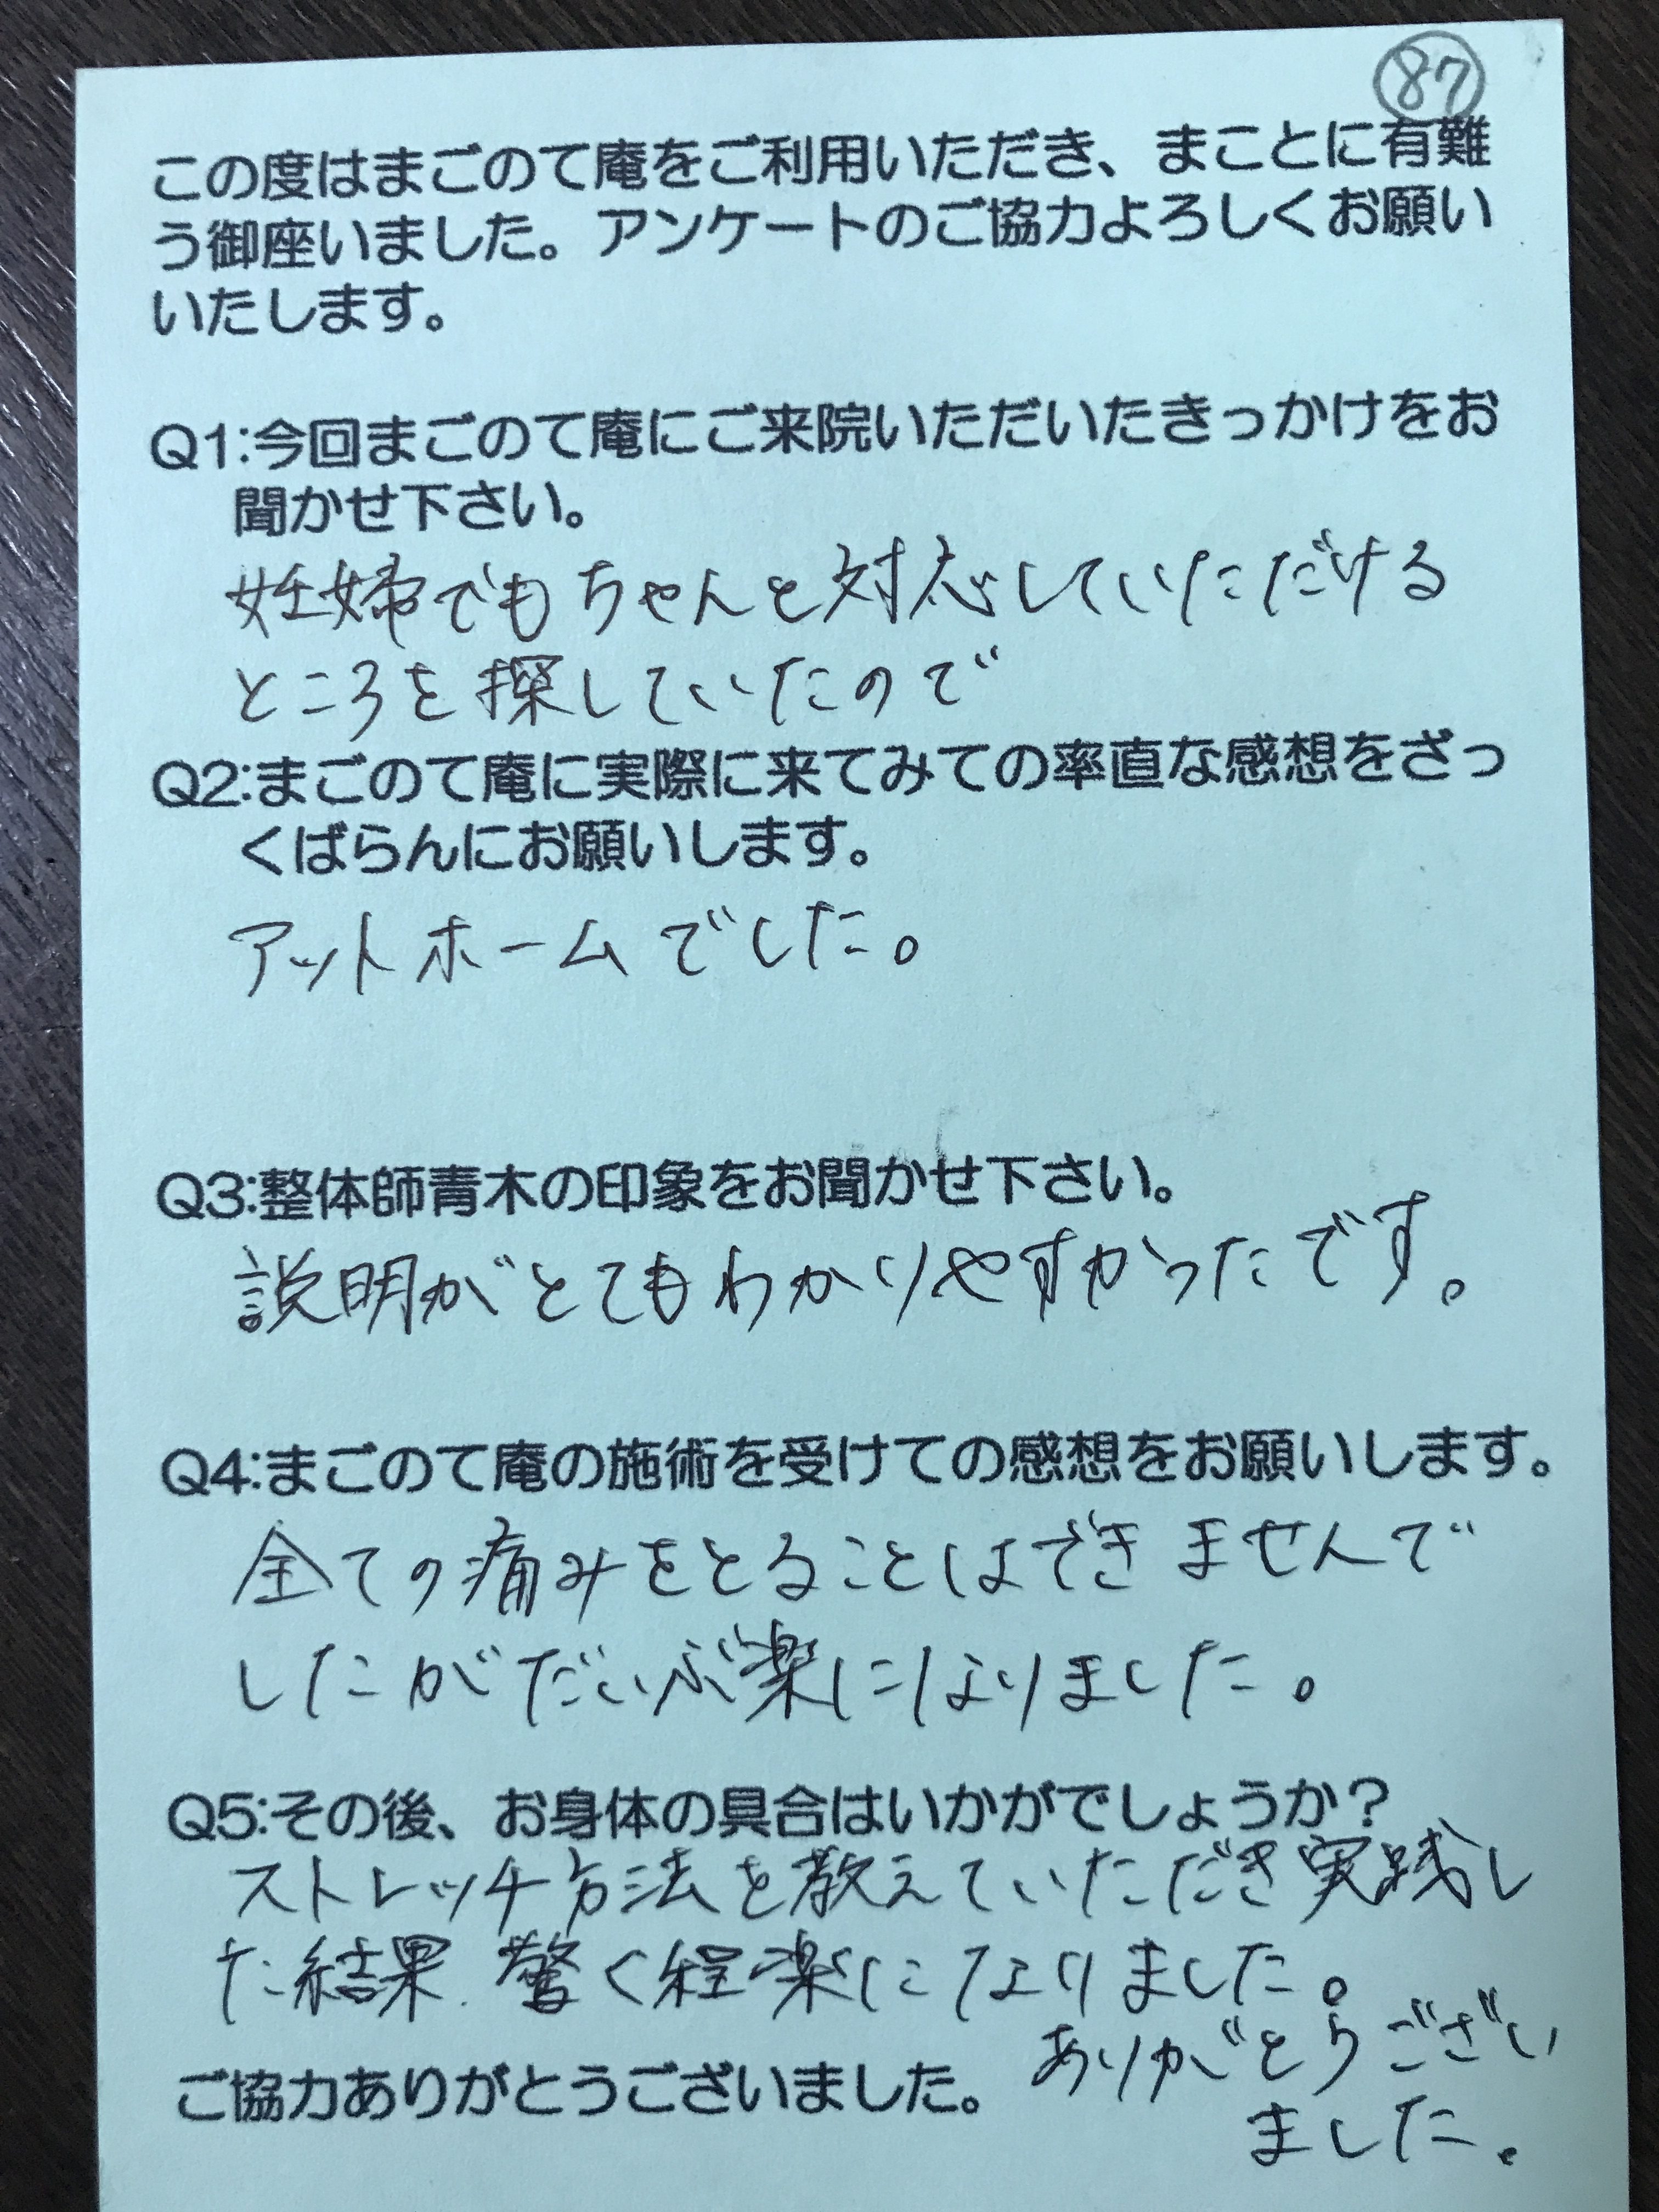 87
この度はまごのて庵をご利用いただき、まことに有難
う御座いました。アンケートのご協力よろしくお願い
いたします。
Q1:今回まごのて庵にご来院いただいたきっかけをお
聞かせ下さい。
妊婦でもちゃんと対応していただける
ところを探していたので
Q2:まごのて庵に実際に来てみての率直な感想をざっ
くばらんにお願いします。
アットホームでした。
Q3:整体師青木の印象をお聞かせ下さい。
説明がとてもわかりやすかったです。
Q4:まごのて庵の施術を受けての感想をお願いします。
全ての痛みをとることはできませんで
したがだいぶ楽になりました。
Q5:その後、お身体の具合はいかがでしょうか?
ストレッチ方法を教えていただき実践し
た結果、驚く程楽になりました。
ありがとうござい
ました。
ご協力ありがとうございました。